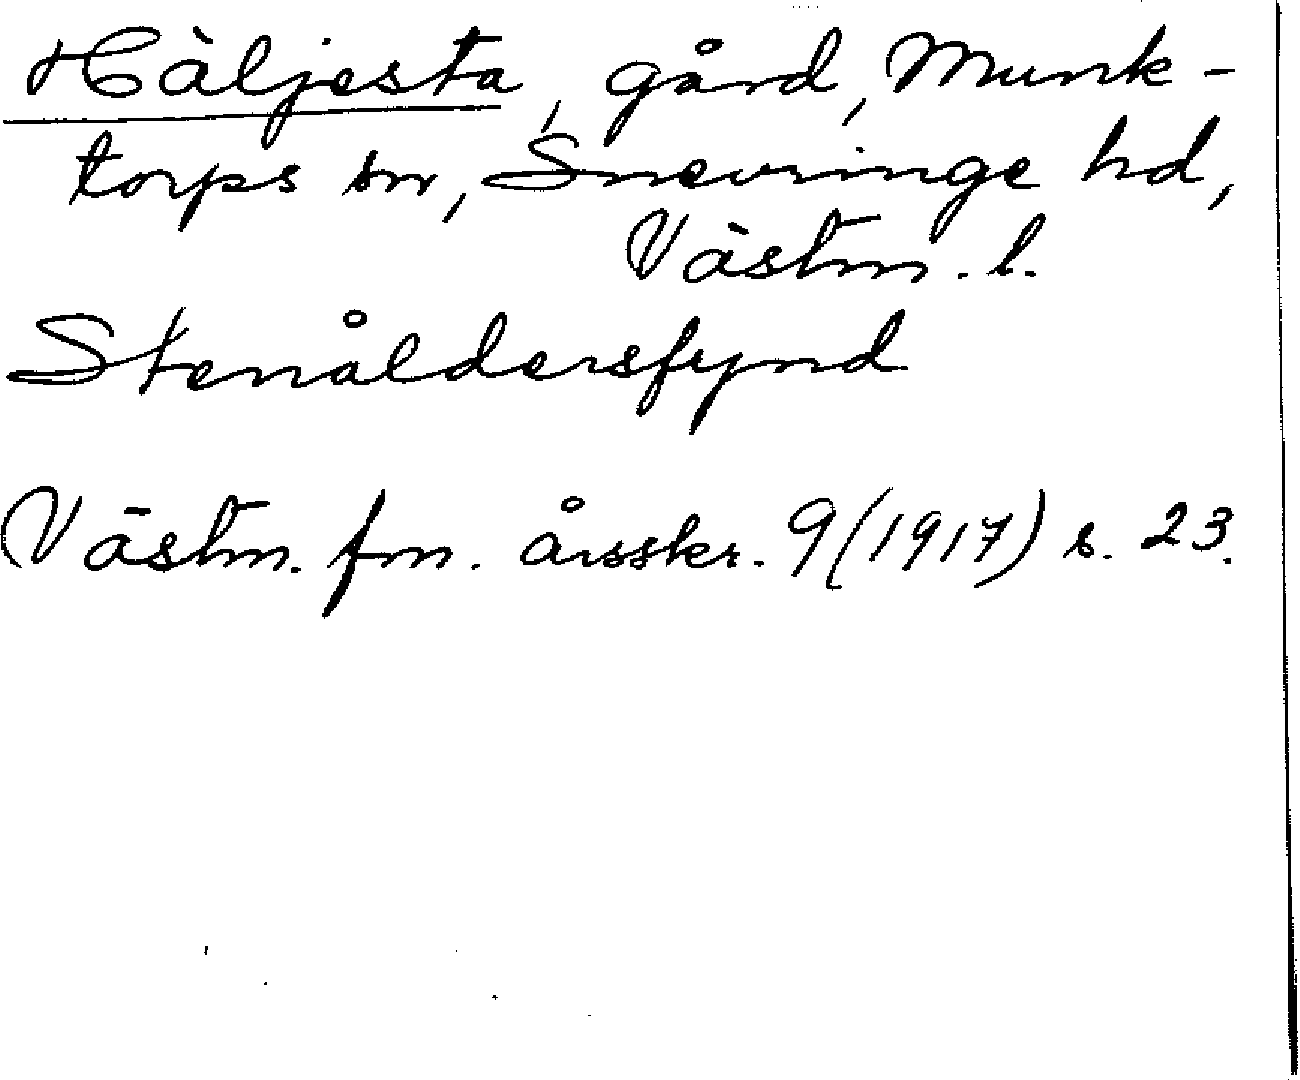 Häljesta, gård, Munk-
torps sn, Snevringe hd,
Västm. l.
Stenåldersfynd
Västm. fm. årsskr. 9 (1917) s. 23.